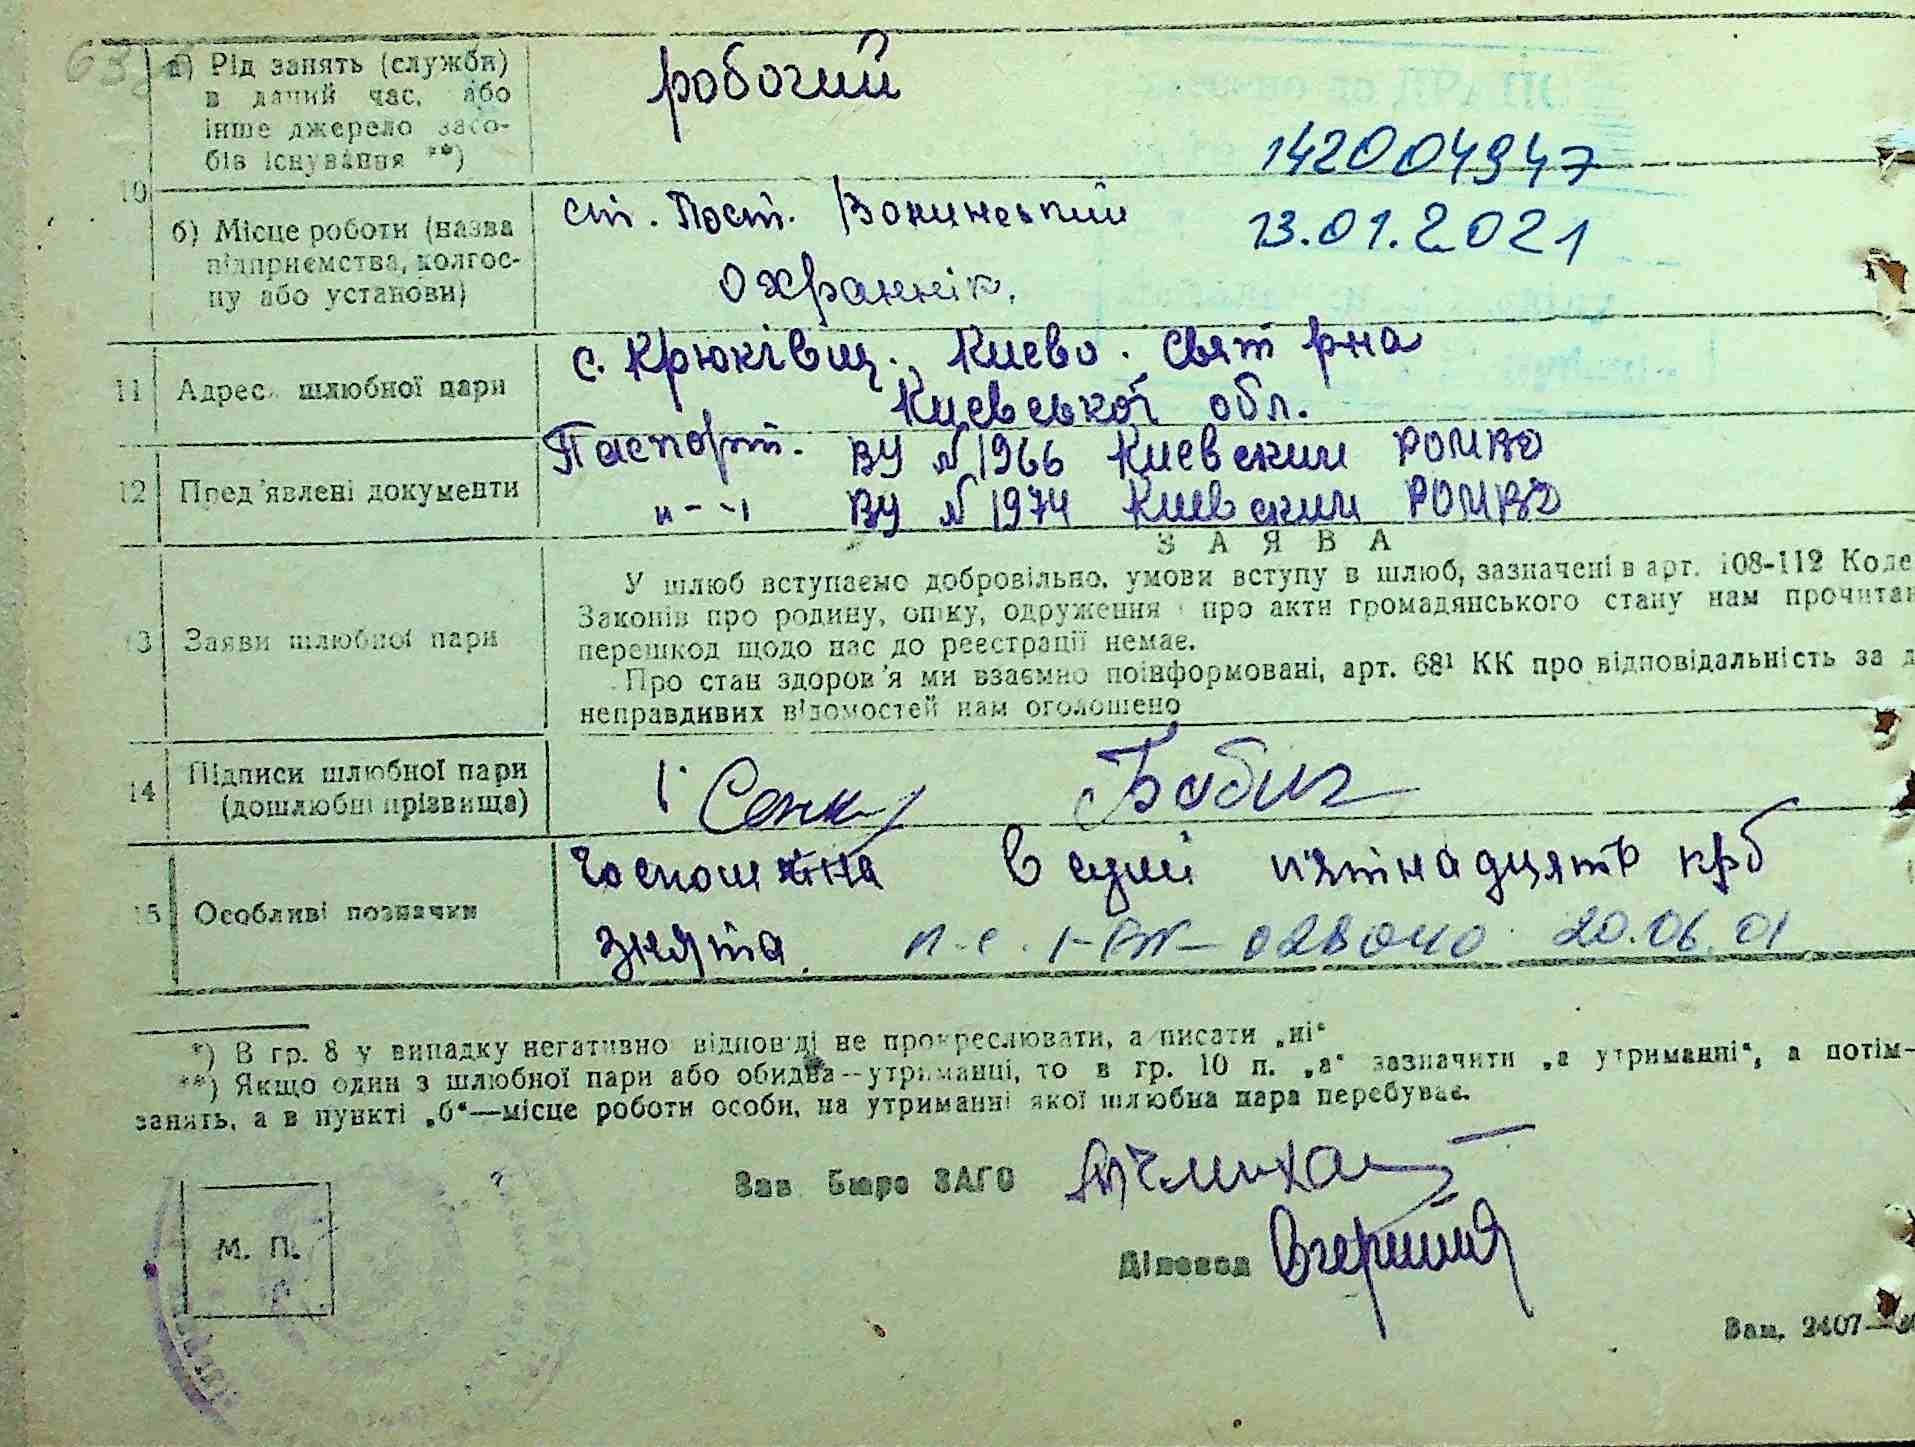 а) Рід занять (служби)
в даний час, або
інше джерело засо-
бів існування **)
робочий
142004947
10
б) Місце роботи (назва
підприємства, колгос-
пу або установи)
ст. Пост. Волинський
13.01.2021
охраннік.
11 Адрес шлюбної пари
с. Крюківщ. Києво. Свят рна
Киевської обл.
12 Пред'явлені документи
Паспорт. ВУ № 1966 Киевским РОМВД
и - ч ВУ № 1974 Киевским РОМВД
ЗАЯВА
13 Заяви шлюбної пари
У шлюб вступаємо добровільно, умови вступу в шлюб, зазначені в арт. 108-112 Коде
Законів про родину, опіку, одруження і про акти громадянського стану нам прочитан
перешкод щодо нас до реєстрації немає.
Про стан здоров'я ми взаємно поінформовані, арт. 68¹ КК про відповідальність за д
неправдивих відомостей нам оголошено
14 Підписи шлюбної пари
(дошлюбні прізвища)
Бабич
15 Особливі позначки
госпошлина в сумі п'ятнадцять крб
знята. п.с. 1-БК-028040 20.06.01
*) В гр. 8 у випадку негативної відповіді не прокреслювати, а писати „ні“
**) Якщо один з шлюбної пари або обидва—утриманці, то в гр. 10 п. „а“ зазначити „а утриманні“, а потім—
занять, а в пункті „б“—місце роботи особи, на утриманні якої шлюбна пара перебуває.
Зав. Бюро ЗАГС
М. П.
Діловод
Зам. 2407—